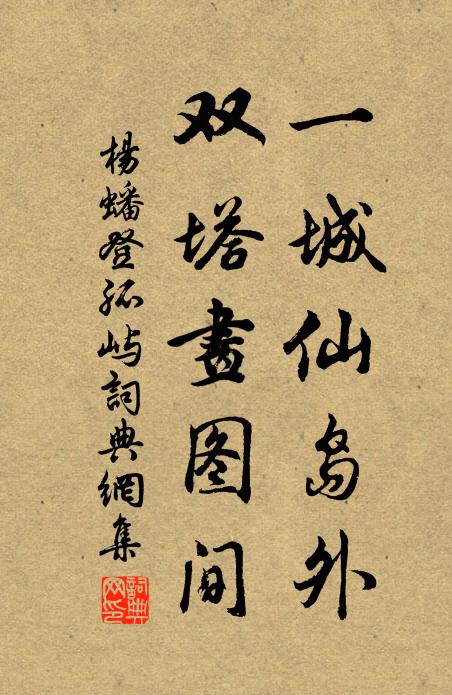 一城仙岛外
双塔畫图间
楊蟠登孤屿詞典網集
詞典网印